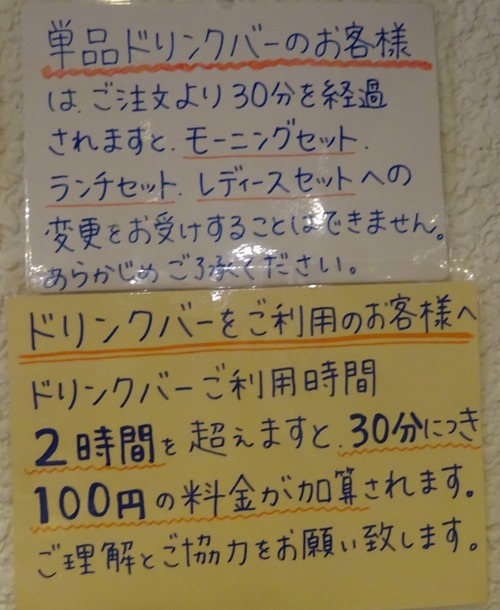 単品ドリンクバーのお客様
は、ご注文より30分を経過
されますと、モーニングセット、
ランチセット、レディースセットへの
変更をお受けすることはできません。
あらかじめご了承ください。
ドリンクバーをご利用のお客様へ
ドリンクバーご利用時間
2時間を超えますと、30分につき
100円の料金が加算されます。
ご理解とご協力をお願い致します。